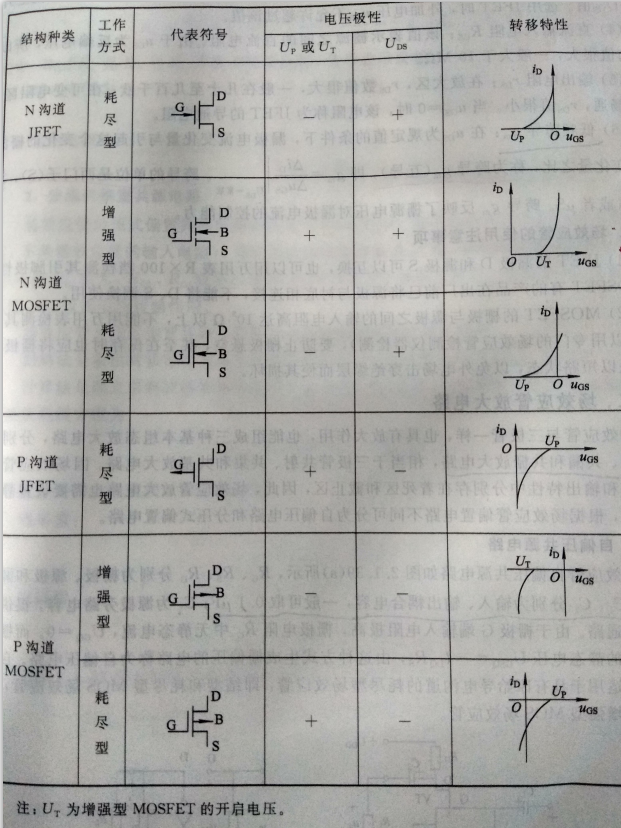 结构种类 工作方式 代表符号 电压极性 转移特性
U_P 或 U_T U_DS
N 沟道 JFET 耗尽型 G D S − + i_D U_P O u_GS
N 沟道 MOSFET 增强型 G D B S + + i_D O U_T u_GS
耗尽型 G D B S − + i_D U_P O u_GS
P 沟道 JFET 耗尽型 G D S + − i_D O U_P u_GS
P 沟道 MOSFET 增强型 G D B S − − U_T i_D O u_GS
耗尽型 G D B S + − i_D O U_P u_GS
注：U_T 为增强型 MOSFET 的开启电压。